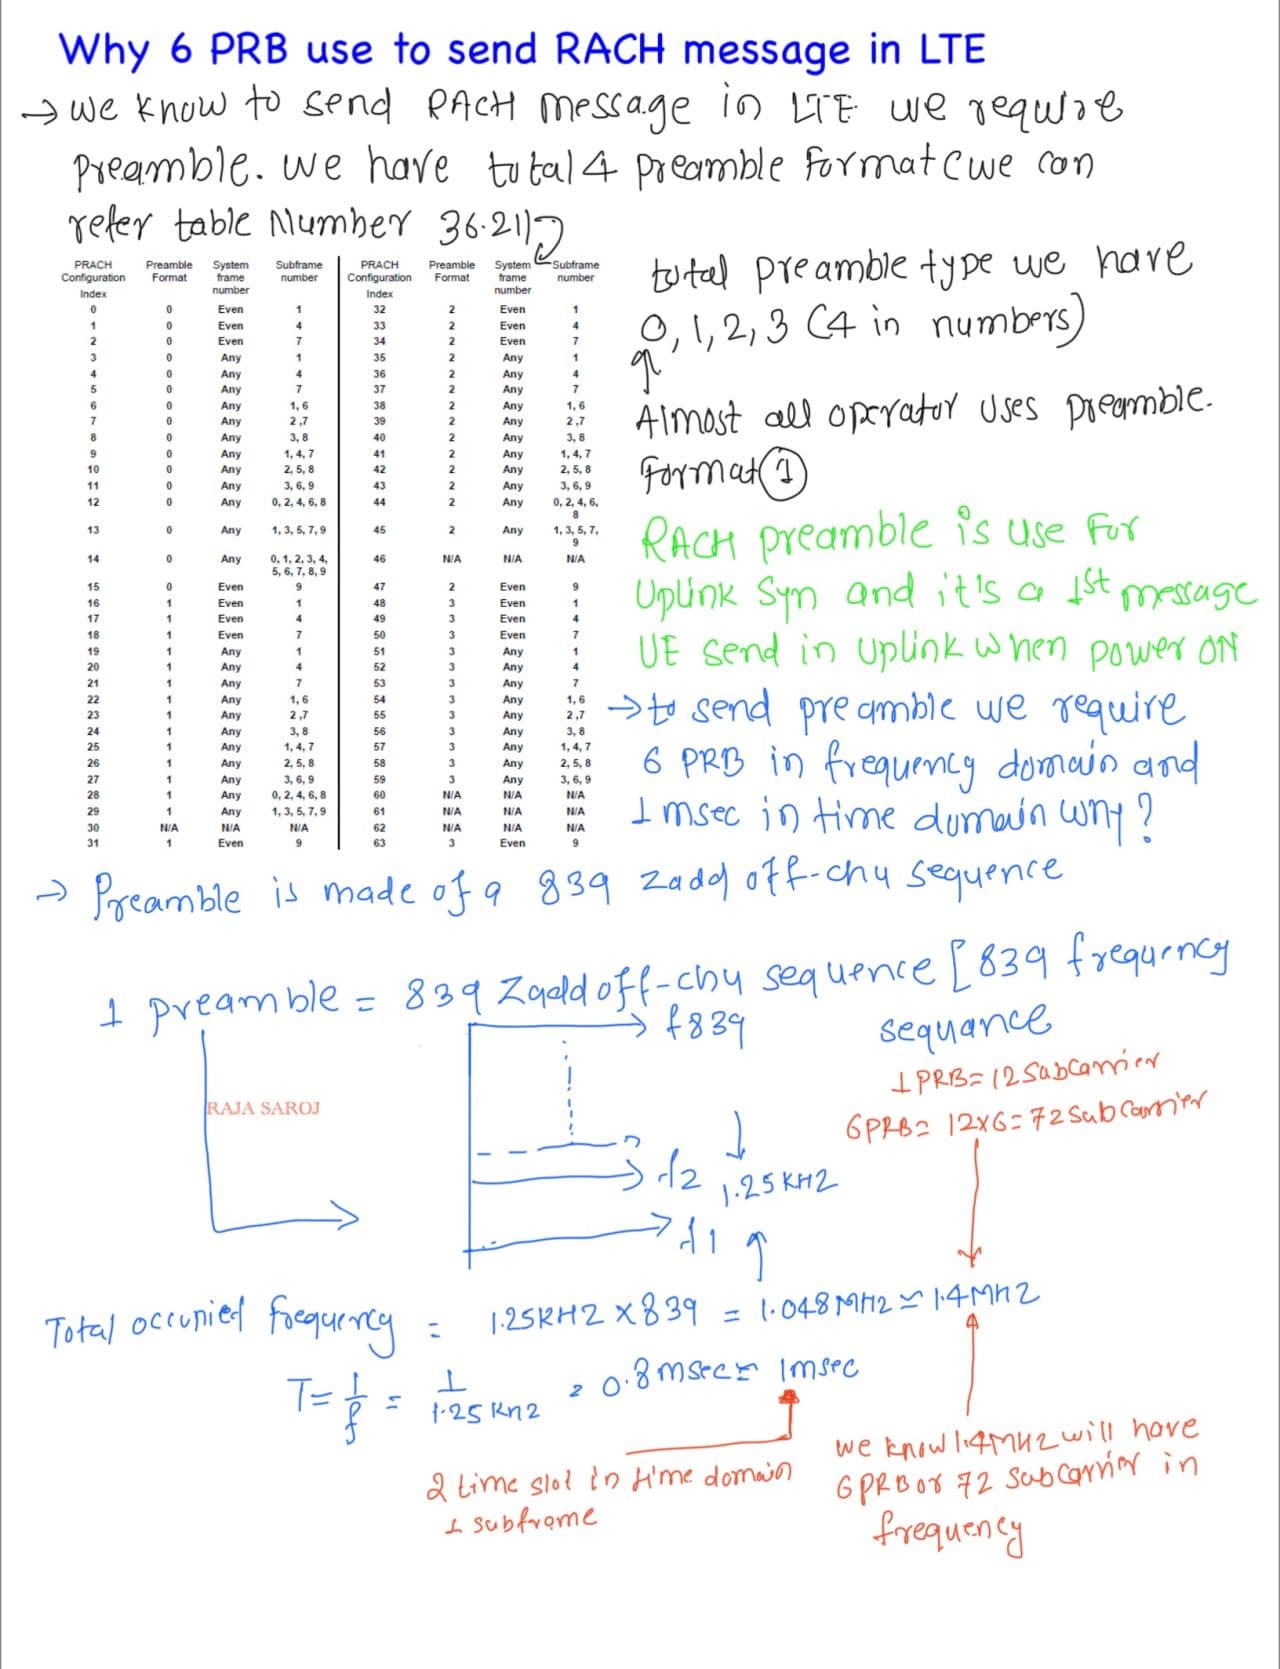 Why 6 PRB use to send RACH message in LTE
→ we know to send RACH message in LTE we require
Preamble. we have total 4 preamble format (we can
refer table Number 36.211)
PRACH Configuration Index Preamble Format System frame number Subframe number PRACH Configuration Index Preamble Format System frame number Subframe number
0 0 Even 1 32 2 Even 1
1 0 Even 4 33 2 Even 4
2 0 Even 7 34 2 Even 7
3 0 Any 1 35 2 Any 1
4 0 Any 4 36 2 Any 4
5 0 Any 7 37 2 Any 7
6 0 Any 1, 6 38 2 Any 1, 6
7 0 Any 2 ,7 39 2 Any 2 ,7
8 0 Any 3, 8 40 2 Any 3, 8
9 0 Any 1, 4, 7 41 2 Any 1, 4, 7
10 0 Any 2, 5, 8 42 2 Any 2, 5, 8
11 0 Any 3, 6, 9 43 2 Any 3, 6, 9
12 0 Any 0, 2, 4, 6, 8 44 2 Any 0, 2, 4, 6, 8
13 0 Any 1, 3, 5, 7, 9 45 2 Any 1, 3, 5, 7, 9
14 0 Any 0, 1, 2, 3, 4, 5, 6, 7, 8, 9 46 N/A N/A N/A
15 0 Even 9 47 2 Even 9
16 1 Even 1 48 3 Even 1
17 1 Even 4 49 3 Even 4
18 1 Even 7 50 3 Even 7
19 1 Any 1 51 3 Any 1
20 1 Any 4 52 3 Any 4
21 1 Any 7 53 3 Any 7
22 1 Any 1, 6 54 3 Any 1, 6
23 1 Any 2 ,7 55 3 Any 2 ,7
24 1 Any 3, 8 56 3 Any 3, 8
25 1 Any 1, 4, 7 57 3 Any 1, 4, 7
26 1 Any 2, 5, 8 58 3 Any 2, 5, 8
27 1 Any 3, 6, 9 59 3 Any 3, 6, 9
28 1 Any 0, 2, 4, 6, 8 60 N/A N/A N/A
29 1 Any 1, 3, 5, 7, 9 61 N/A N/A N/A
30 N/A N/A N/A 62 N/A N/A N/A
31 1 Even 9 63 3 Even 9
total preamble type we have
0, 1, 2, 3 (4 in numbers)
Almost all operator uses preamble.
format 1
RACH preamble is use for
Uplink Syn and it's a 1st message
UE send in uplink when power ON
→ to send preamble we require
6 PRB in frequency domain and
1 msec in time domain why?
→ Preamble is made of a 839 zadd off-chu sequence
1 preamble = 839 Zadd off-chu sequence [839 frequency
sequance
f839
1 PRB = 12 Subcarrier
RAJA SAROJ
6PRB = 12x6 = 72 Subcarrier
f2
1.25 KHZ
f1
Total occupied frequency = 1.25KHZ x 839 = 1.048 MHZ ≃ 1.4MHZ
T = 1/f = 1/1.25 KHZ = 0.8 msec ≃ 1msec
we know 1.4MHZ will have
2 time slot in time domain
6 PRB or 72 Subcarrier in
1 subframe
frequency